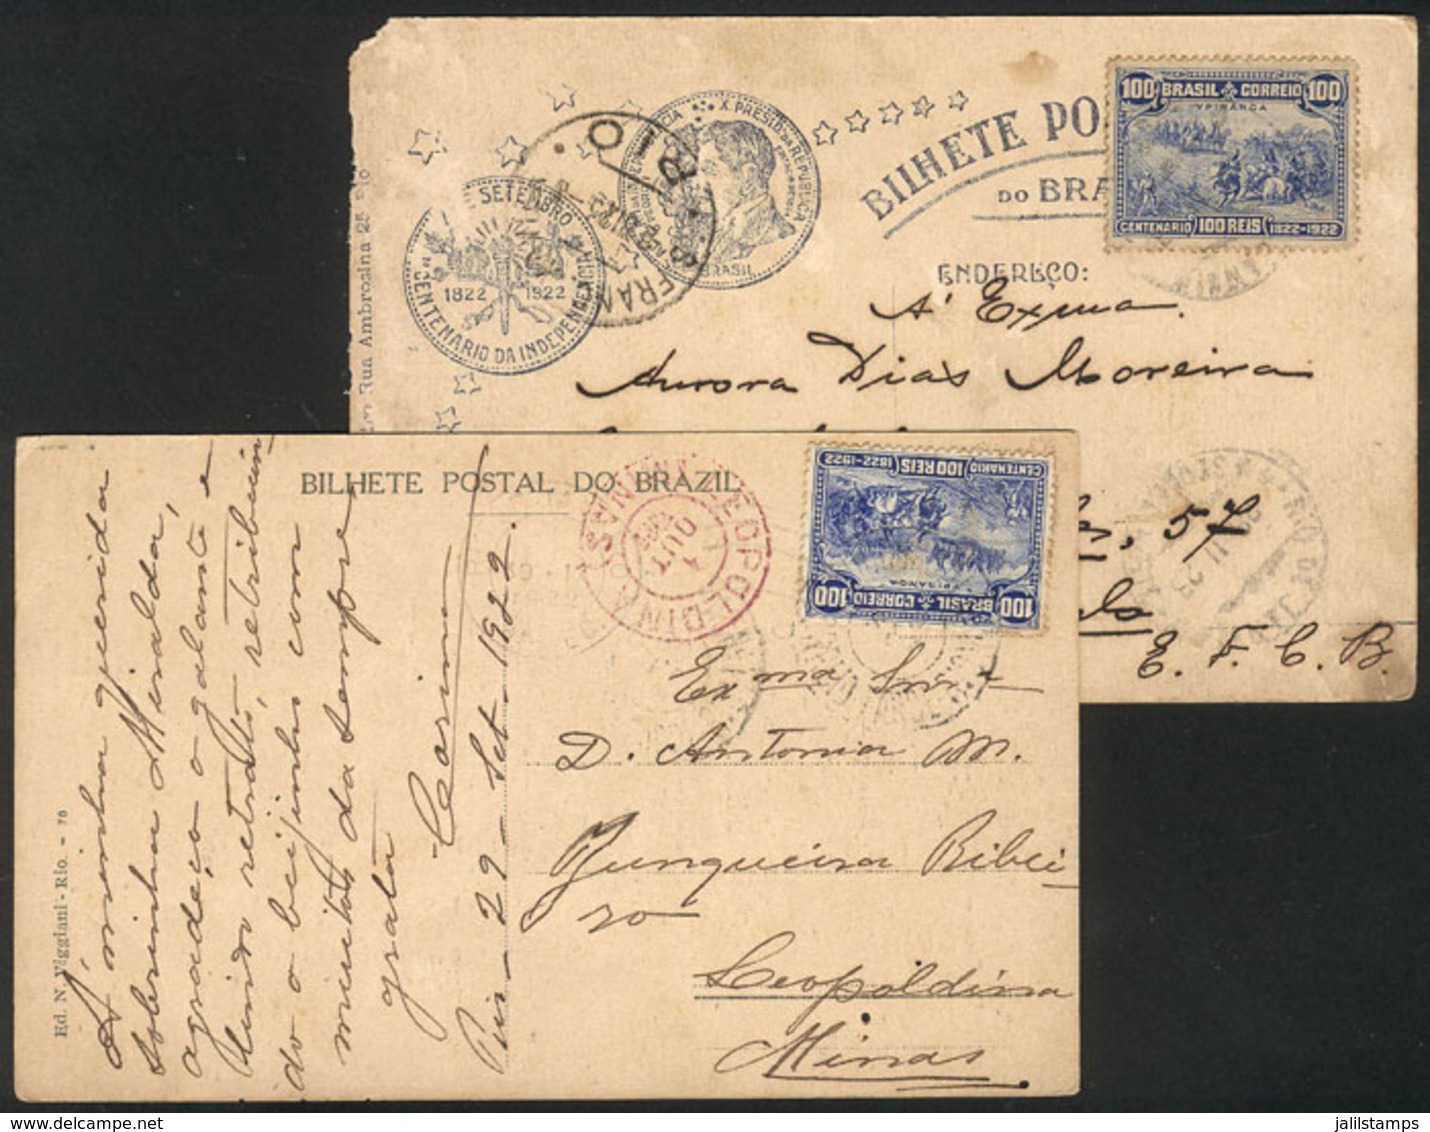 BILHETE PO
DO BRA
100 BRASIL CORREIO 100
YPIRANGA
CENTENARIO 100 REIS 1822-1922
X. PRESID. DA REPUBLICA
BRASIL
SETEMBRO
1822 1922
CENTENARIO DA INDEPENDENCIA
RIO
FRAN
Rua Ambrosina 25
ENDEREÇO:
A' Exma.
Aurora Dias Moreira
57
E. F. C. B.
RIO DE
BILHETE POSTAL DO BRAZIL
100 BRASIL CORREIO 100
YPIRANGA
CENTENARIO 100 REIS 1822-1922
LEOPOLDINA
MINAS
1 OUT
Á minha querida
sobrinha Minalda,
agradeço o galante e
lindo retratto, retribuin
do o beijinho com
muitos da sempre
grata
Corina
29 - Set - 1922.
Exma Snra
D. Antonia M.
Junqueira Ribei-
ro
Leopoldina
Minas
Ed. N. Viggiani - Rio. - 76
jalilstamps